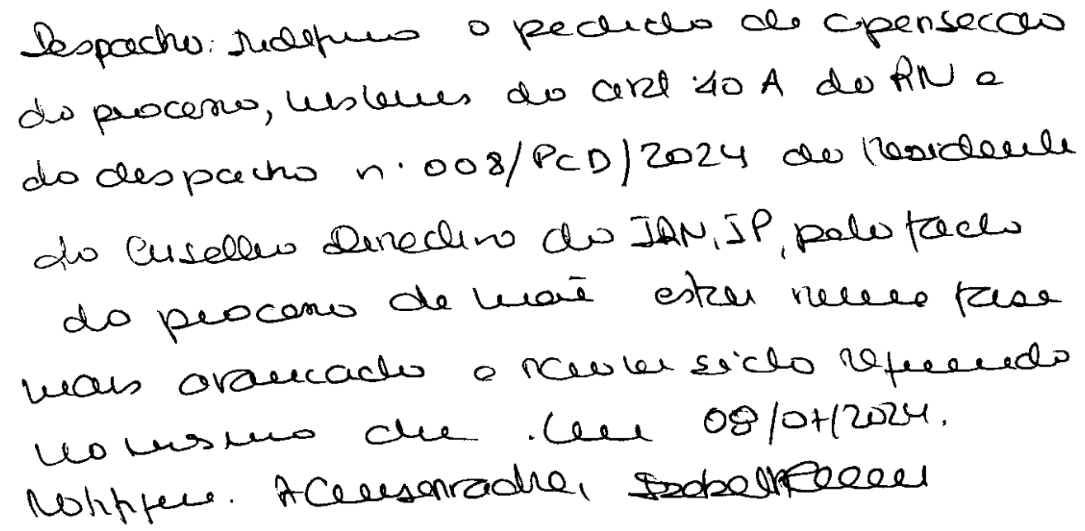 Despacho: Indefiro o pedido de apensação
do processo, nos termos do artº 40 A do RN e
do despacho nº 008/PCD/2024 do Presidente
do Conselho Directivo do IRN, IP, pelo facto
do processo de mãe estar numa fase
mais avançado e não ter sido
no mesmo dia. Em 08/07/2024.
Notifique. A Conservadora, Isabel